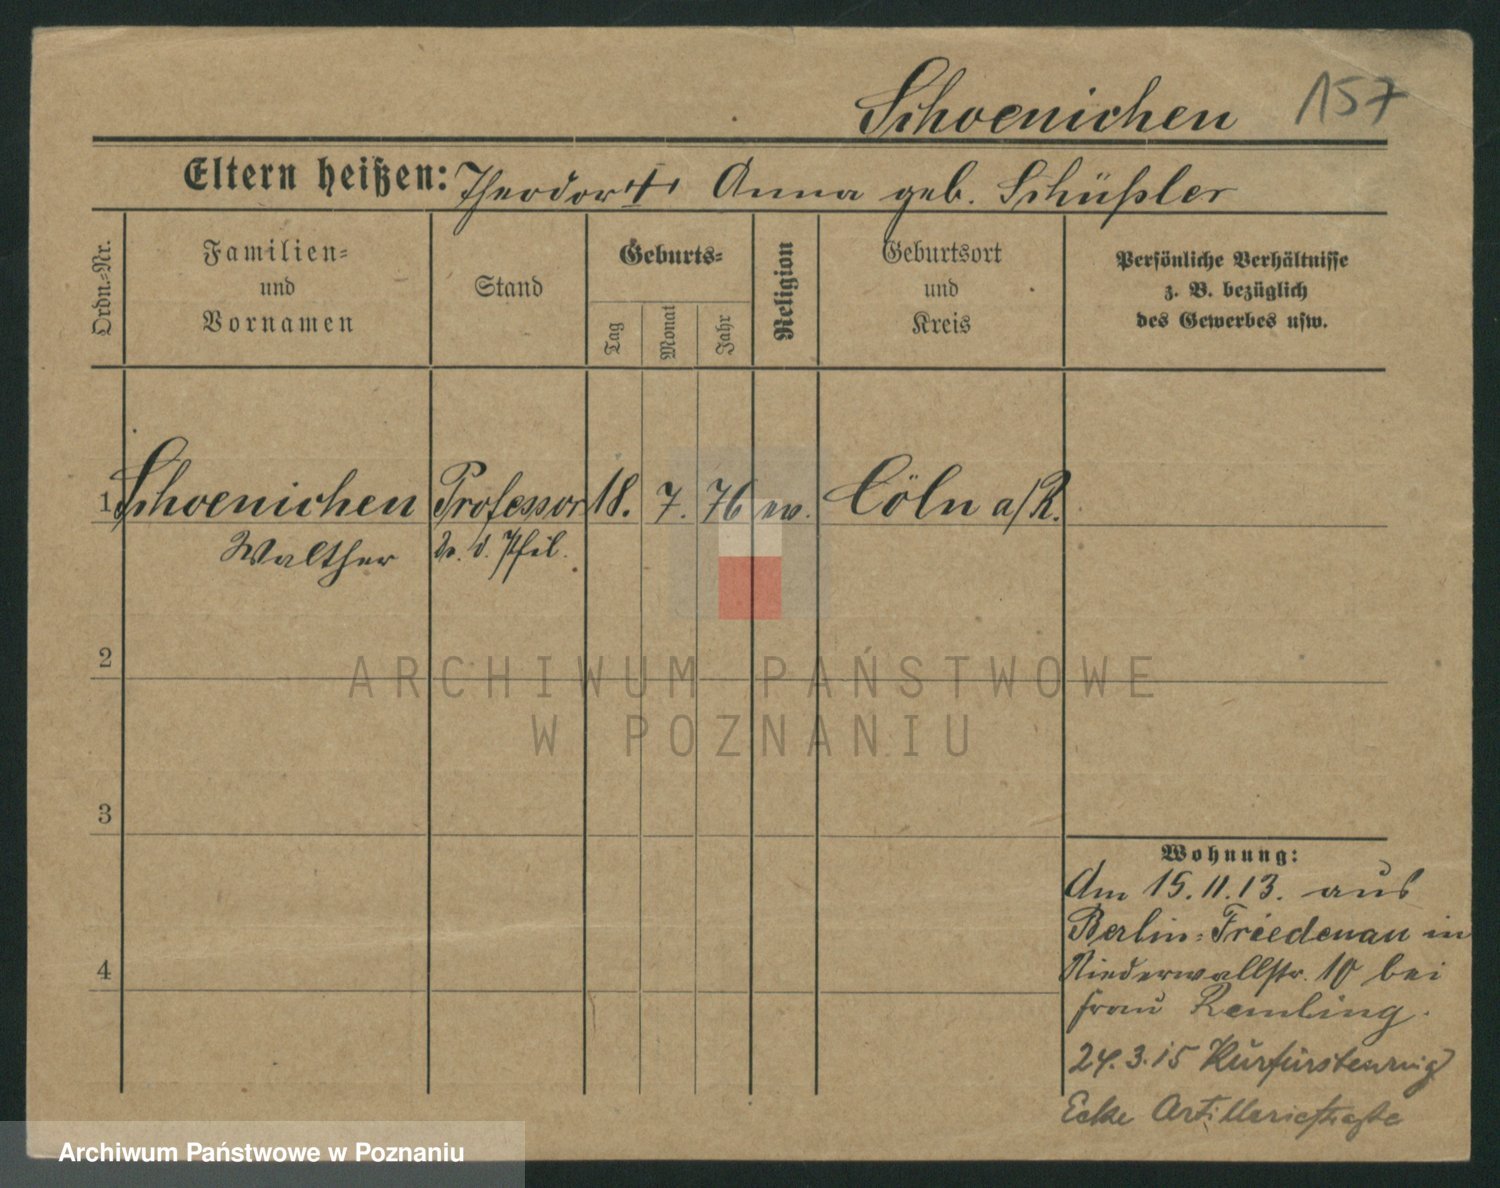 Schoenichen 157
Eltern heißen: Theodor + Anna geb. Schüßler
Ordn.-Nr.
Familien-
und
Vornamen
Stand
Geburts-
Tag
Monat
Jahr
Religion
Geburtsort
und
Kreis
Persönliche Verhältnisse
z. B. bezüglich
des Gewerbes usw.
1 Schoenichen Professor 18. 7. 76 ev. Cöln a/R.
Walther Dr. d. Phil.
2
ARCHIWUM PAŃSTWOWE
W POZNANIU
3
Wohnung:
Am 15.11.13. aus
Berlin-Friedenau in
4
Niederwallstr. 10 bei
Frau Remling.
24.3.15 Kurfürstenring
Ecke Artilleriestraße
Archiwum Państwowe w Poznaniu